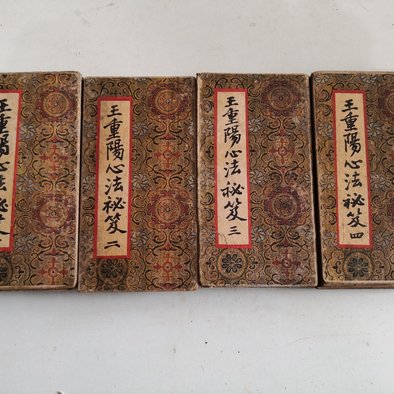 王重陽心法祕笈
王重陽心法祕笈二
王重陽心法祕笈三
王重陽心法祕笈四